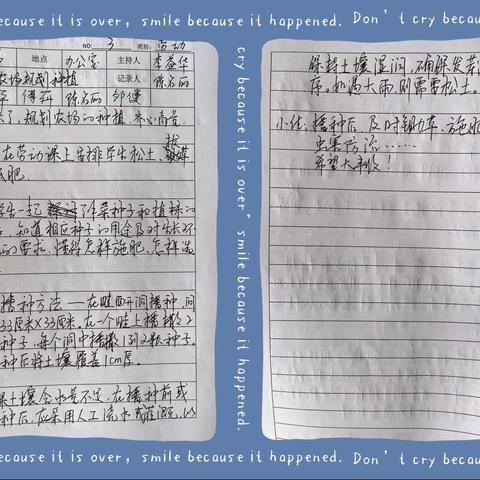 because it is over, smile because it happened. Don't cry becau
NO: 3 类别: 劳动
地点 办公室 主持人 李益华
农场规划种植 记录人 陈名丽
傅莉 陈名丽 邹健
了,规划农场的种植,齐心商量
在劳动课上安排学生松土、拔
肥。
学生一起 了解菜种子和植株的
知道相应种子的用余及对生长环
的要求,懂得怎样施肥、怎样浇
播种方法——在畦面开洞播种,间
33厘米X33厘米,在一个畦上播撒2
种子,每个洞中播撒1到2颗种子。
种后将土壤覆盖1cm厚。
果土壤含水量不足,在播种前或
种后,应采用人工浇水或灌溉,以
cry because it is over, smile because it happened.
保持土壤湿润,确保发芽
序。如遇大雨,则需要松土。
小结:播种后,及时锄草、施肥
虫害防治……
希望大丰收!
because it is over, smile because it happened. Don't cry becau